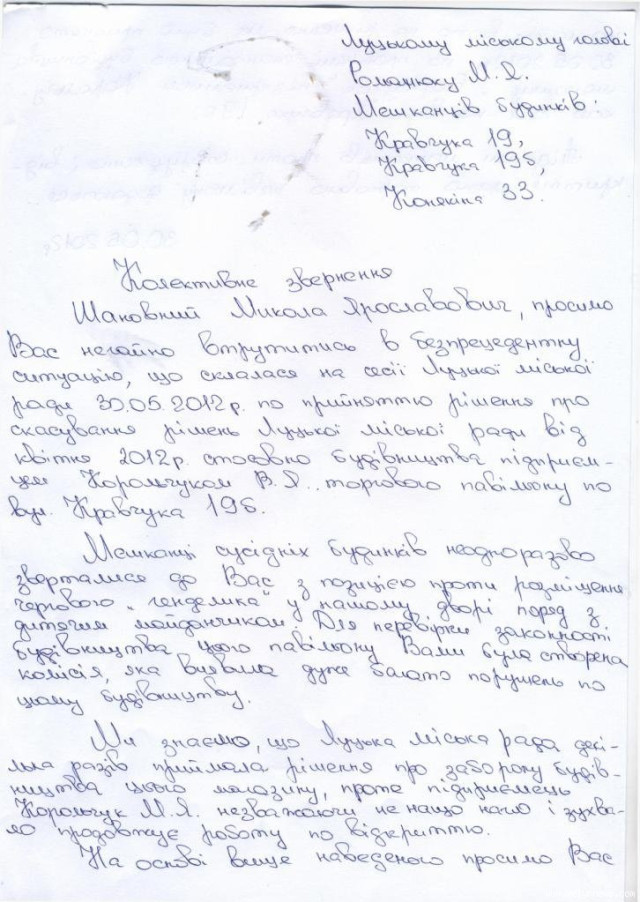 Луцькому міському голові
Романюку М. Я.
Мешканців будинків:
Кравчука 19,
Кравчука 19б,
Конякіна 33.
Колективне звернення
Шановний Микола Ярославович, просимо
Вас негайно втрутитись в безпрецедентну
ситуацію, що склалася на сесії Луцької міської
ради 30.05.2012р. по прийняттю рішення про
скасування рішень Луцької міської ради від
квітня 2012р. стосовно будівництва підприєм-
цем Корольчуком В.Я. торгового павільйону по
вул. Кравчука 19б.
Мешканці сусідніх будинків неодноразово
зверталися до Вас з позицією проти розміщення
чергового „генделика" у нашому дворі поряд з
дитячим майданчиком. Для перевірки законності
будівництва цього павільйону Вами була створена
комісія, яка виявила дуже багато порушень по
цьому будівництву.
Ми знаємо, що Луцька міська рада декі-
лька разів приймала рішення про заборону будів-
ництва цього магазину, проте підприємець
Корольчук М.Я. незважаючи не нащо нагло і зухва-
ло продовжує роботу по відкриттю.
На основі вище наведеного просимо Вас